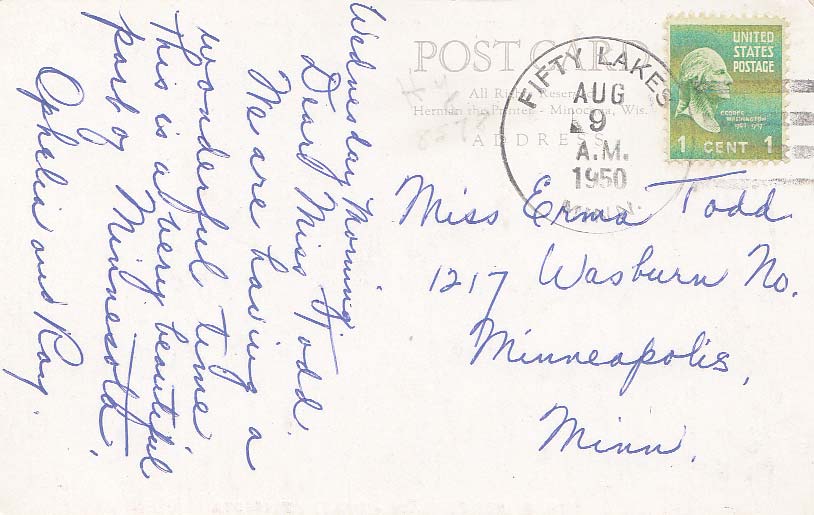 Wednesday Morning
Dear Miss Todd
We are having a
wonderful time
This is a very beautiful
part of Minnesota.
Ophelia and Ray.
POST CARD
All Rights Reserved
Herman the Printer - Minocqua, Wis.
ADDRESS
FIFTY LAKES
AUG
9
A.M.
1950
MINN.
UNITED
STATES
POSTAGE
GEORGE
WASHINGTON
1 CENT 1
Miss Erma Todd
1217 Wasburn No.
Minneapolis,
Minn.